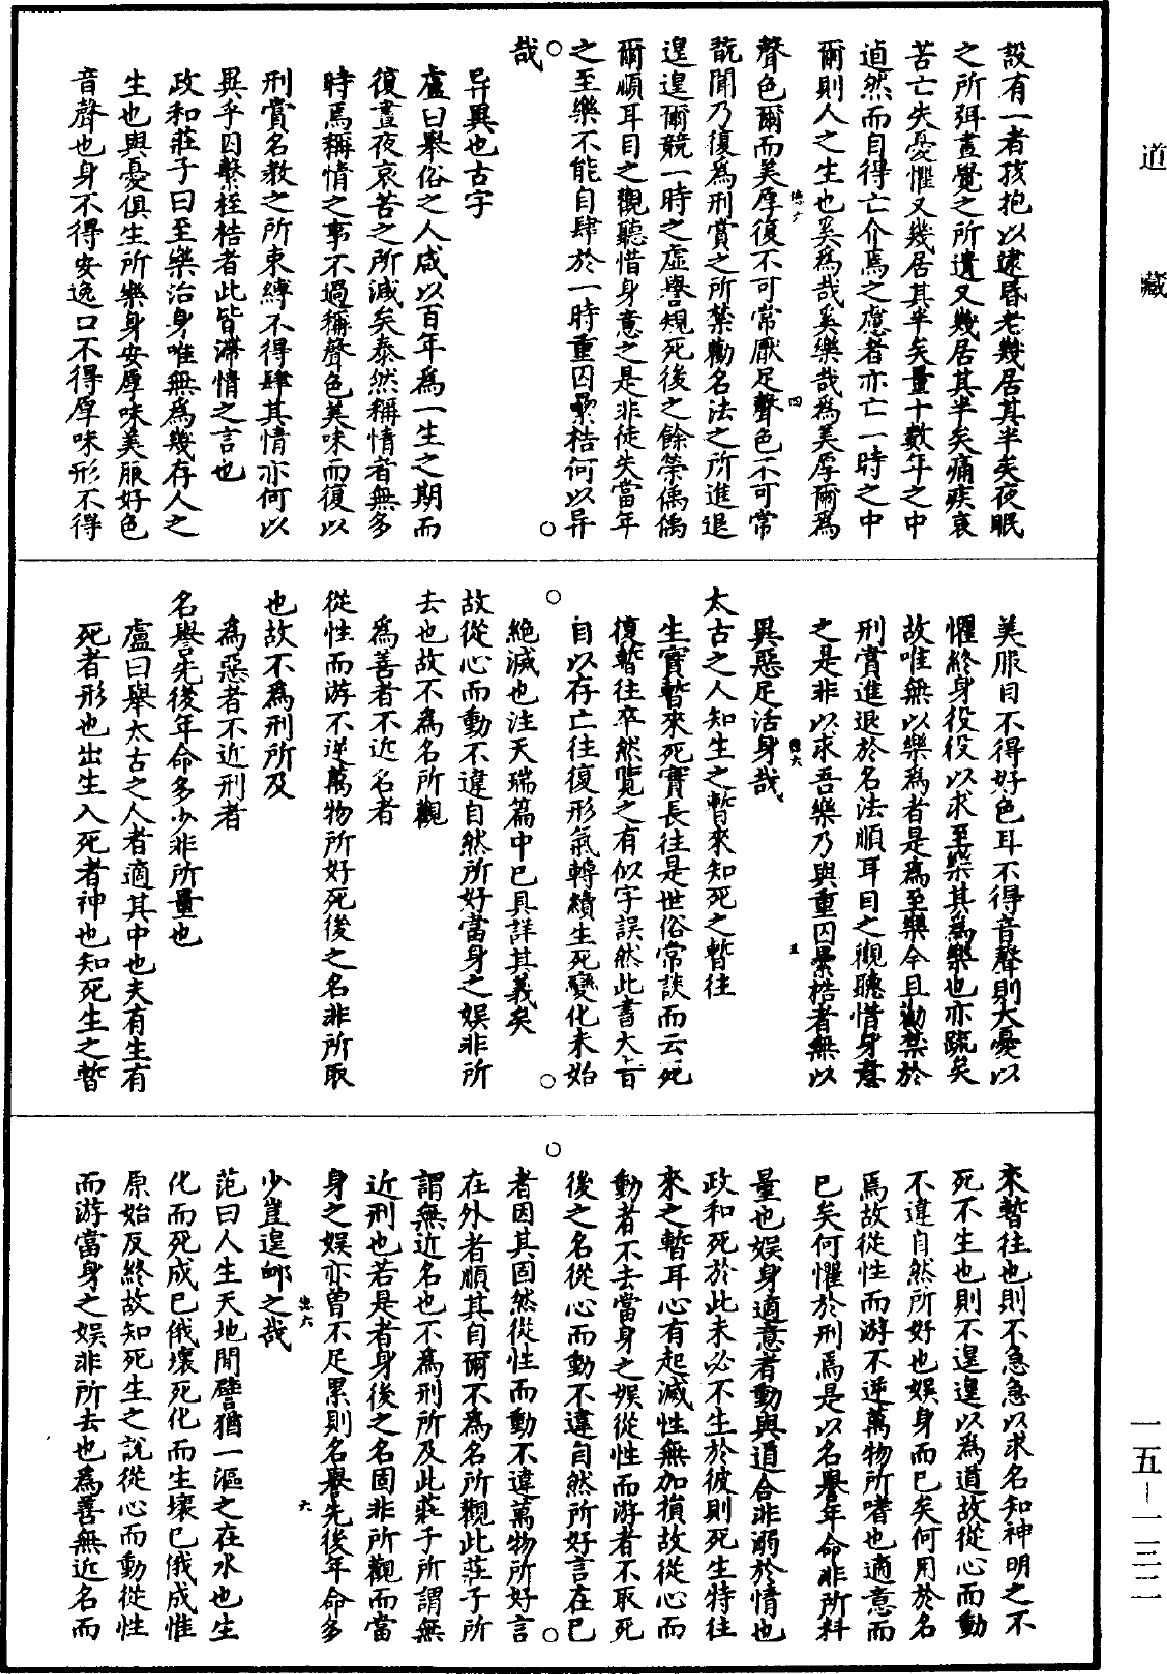 道藏
設有一者孩抱以逮昏老幾居其半矣夜眠
之所弭晝覺之所遺又幾居其半矣痛疾哀
苦亡失憂懼又幾居其半矣量十數年之中
逌然而自得亡介焉之慮者亦亡一時之中
爾則人之生也奚為哉奚樂哉為美厚爾為
聲色爾而美厚復不可常厭足聲色不可常
翫聞乃復為刑賞之所禁勸名法之所進退
遑遑爾競一時之虛譽規死後之餘榮偊偊
爾順耳目之觀聽惜身意之是非徒失當年
之至樂不能自肆於一時重囚纍梏何以异
哉
异異也古字
盧曰舉俗之人咸以百年為一生之期而
復晝夜哀苦之所減矣泰然稱情者無多
時焉稱情之事不過稱聲色美味而復以
刑賞名教之所束縛不得肆其情亦何以
異乎囚繫桎梏者此皆滯情之言也
政和莊子曰至樂治身唯無為幾存人之
生也與憂俱生所樂身安厚味美服好色
音聲也身不得安逸口不得厚味形不得
美服目不得好色耳不得音聲則大憂以
懼終身役役以求至樂其為樂也亦疏矣
故唯無以樂為者是為至樂今且勸禁於
刑賞進退於名法順耳目之觀聽惜身意
之是非以求吾樂乃與重囚纍梏者無以
異惡足活身哉
太古之人知生之暫來知死之暫往
生實暫來死實長往是世俗常談而云死
復暫往卒然覽之有似字誤然此書大旨
自以存亡往復形氣轉續生死變化未始
絕滅也注天瑞篇中已具詳其義矣
故從心而動不違自然所好當身之娛非所
去也故不為名所觀
為善者不近名者
從性而游不逆萬物所好死後之名非所取
也故不為刑所及
為惡者不近刑者
名譽先後年命多少非所量也
盧曰舉太古之人者適其中也夫有生有
死者形也出生入死者神也知死生之暫
來暫往也則不急急以求名知神明之不
死不生也則不遑遑以為道故從心而動
不違自然所好也娛身而已矣何用於名
焉故從性而游不逆萬物所嗜也適意而
已矣何懼於刑焉是以名譽年命非所料
量也娛身適意者動與道合非溺於情也
政和死於此未必不生於彼則死生特往
來之暫耳心有起滅性無加損故從心而
動者不去當身之娛從性而游者不取死
後之名從心而動不違自然所好言在已
者因其固然從性而動不違萬物所好言
在外者順其自爾不為名所觀此莊子所
謂無近名也不為刑所及此莊子所謂無
近刑也若是者身後之名固非所觀而當
身之娛亦曾不足累則名譽先後年命多
少豈遑卹之哉
范曰人生天地間譬猶一漚之在水也生
化而死成已俄壞死化而生壞已俄成惟
原始反終故知死生之說從心而動從性
而游當身之娛非所去也為善無近名而
一五—一三二